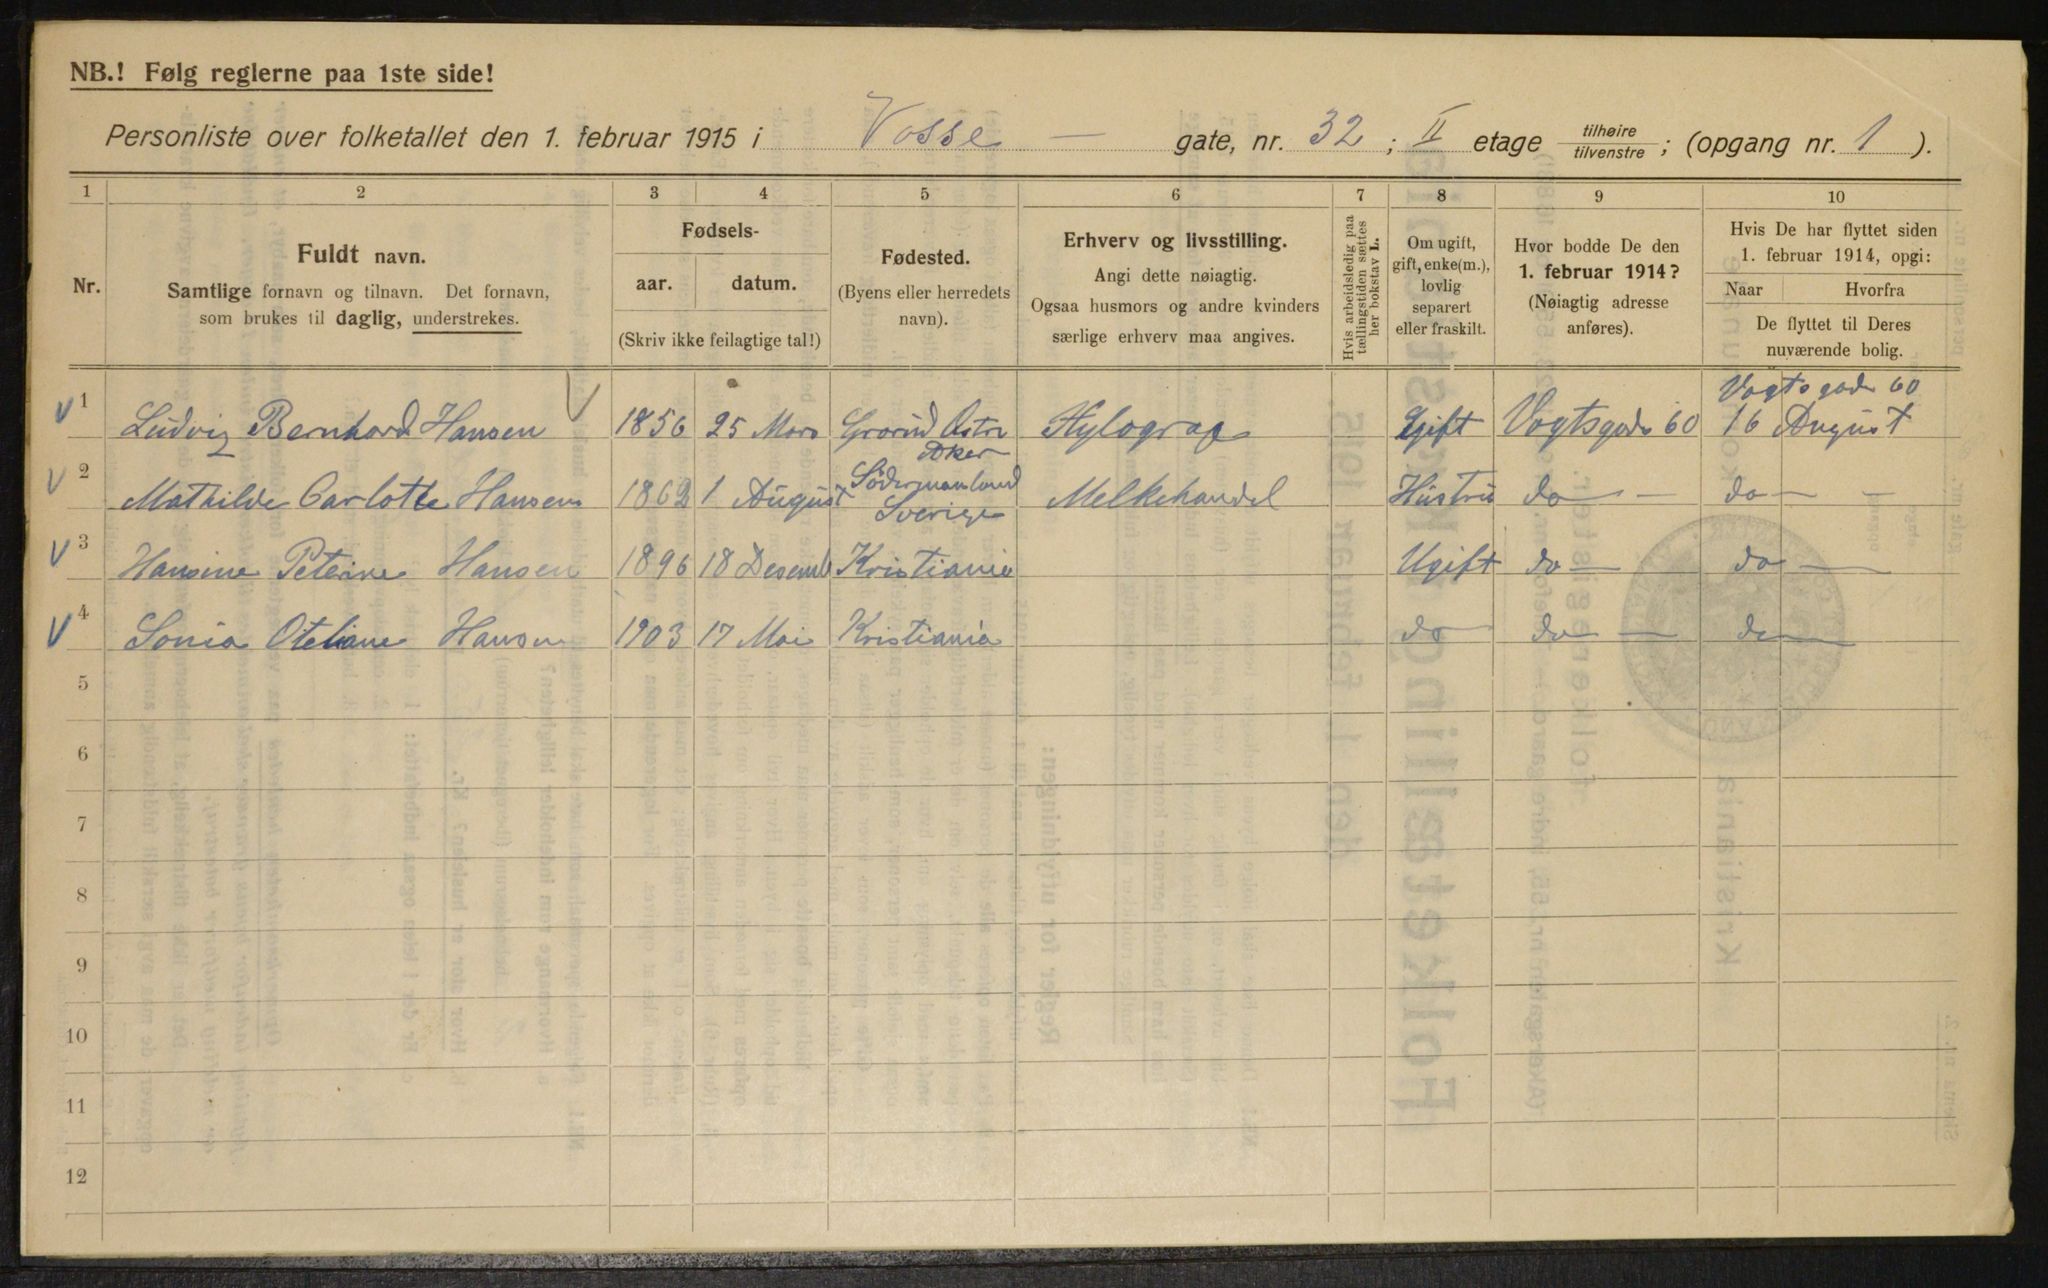 NB.! Følg reglerne paa 1ste side!
Personliste over folketallet den 1. februar 1915 i Vosse — gate, nr. 32; II etage tilhøire tilvenstre; (opgang nr. 1).
1 2 3 4 5 6 7 8 9 10
Nr.
Fuldt navn.
Samtlige fornavn og tilnavn. Det fornavn,
som brukes til daglig, understrekes.
Fødsels-
aar. datum.
(Skriv ikke feilagtige tal!)
Fødested.
(Byens eller herredets
navn).
Erhverv og livsstilling.
Angi dette nøiagtig.
Ogsaa husmors og andre kvinders
særlige erhverv maa angives.
Hvis arbeidsledig paa
tællingstiden sættes
her bokstav L.
Om ugift,
gift, enke(m.),
lovlig
separert
eller fraskilt.
Hvor bodde De den
1. februar 1914?
(Nøiagtig adresse
anføres).
Hvis De har flyttet siden
1. februar 1914, opgi:
Naar Hvorfra
De flyttet til Deres
nuværende bolig.
Vogtsgade 60
1 Ludvig Bernhard Hansen 1856 25 Mars Grorud Østre Gift Vogtsgade 60 16 August
Aker
2 Mathilde Carlotte Hansen 1862 1 August Södermanland Melkehandel Hustru do — do —
Sverige
3 Hansine Peterine Hansen 1896 18 Desemb Kristiania Ugift do — do —
4 Sonia Oteliane Hansen 1903 17 Mai Kristiania do do — do —
5
6
7
8
9
10
11
12